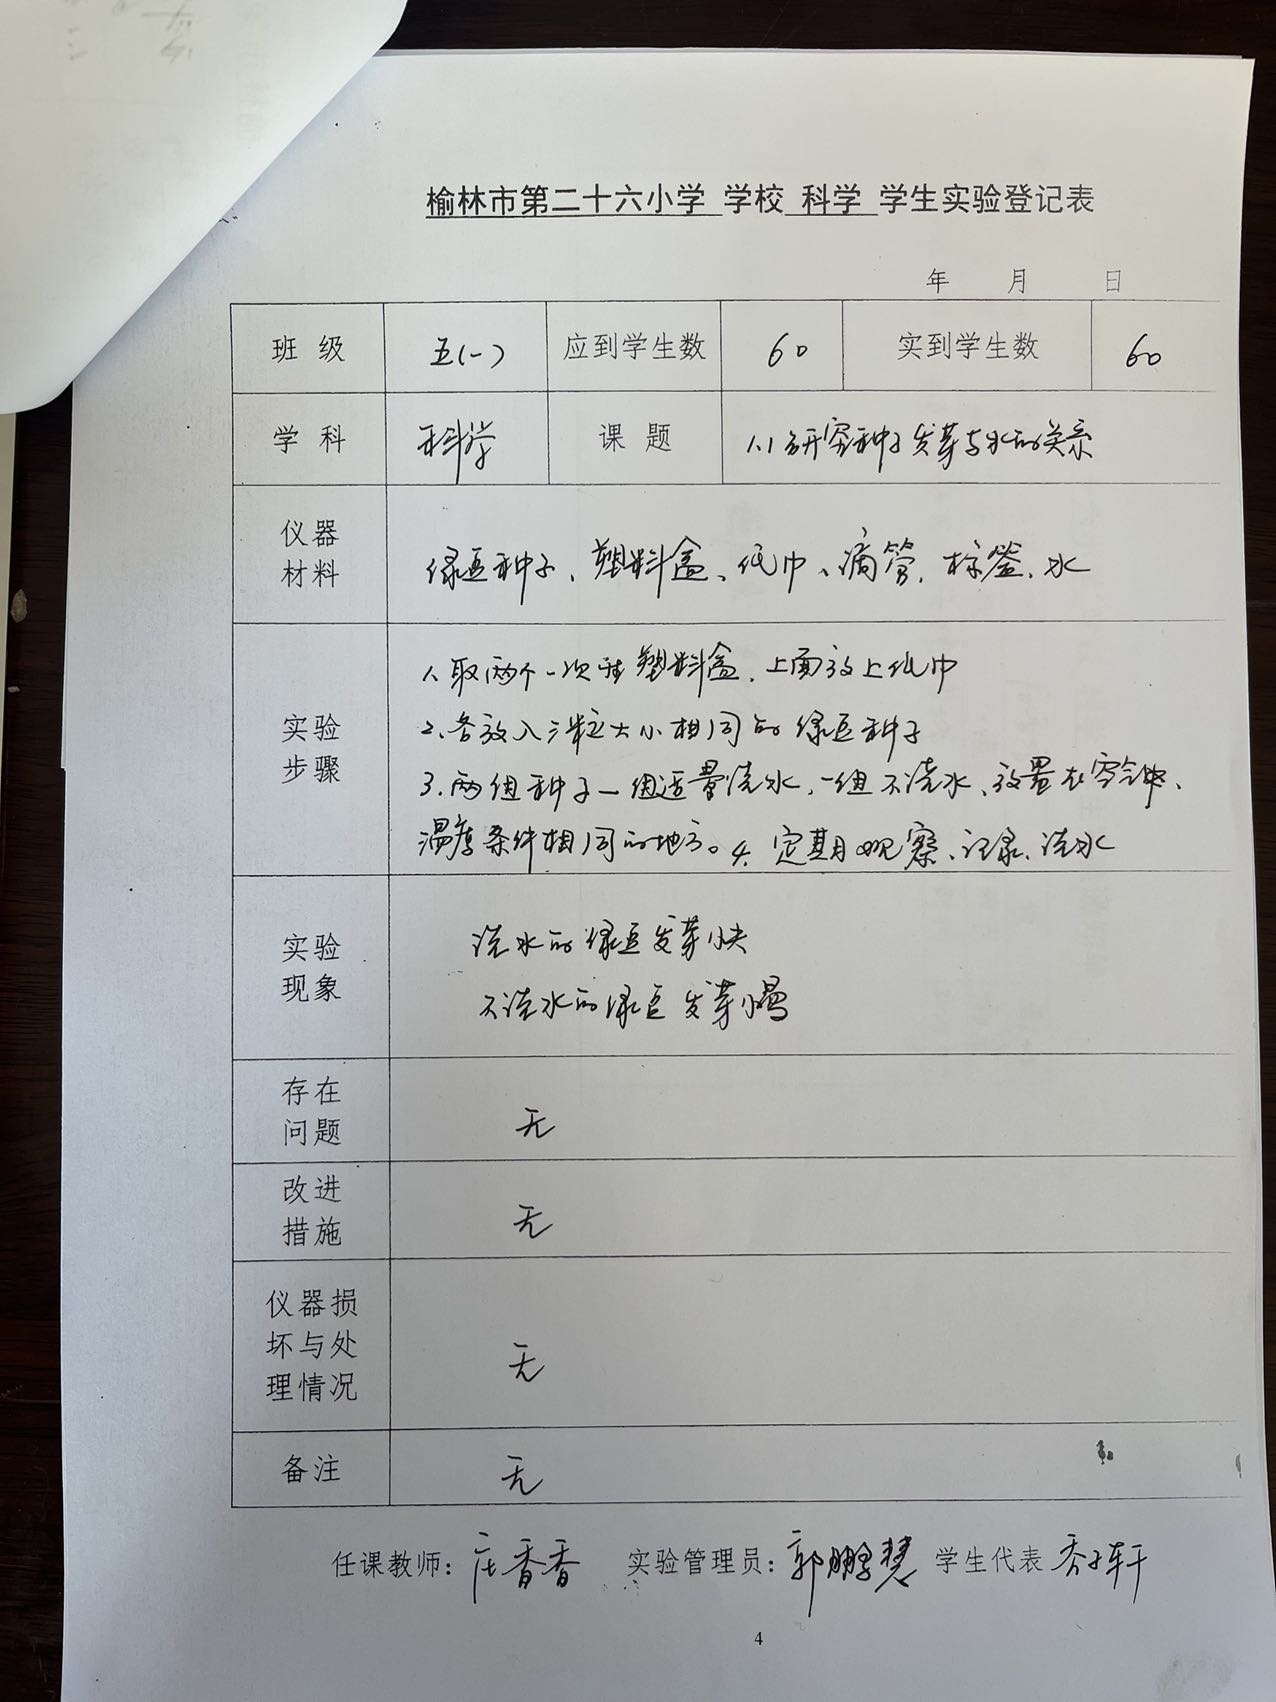 榆林市第二十六小学 学校 科学 学生实验登记表
年 月 日
班级 五(一) 应到学生数 60 实到学生数 60
学科 科学 课题 1.1研究种子发芽与水的关系
仪器
材料
绿豆种子、塑料盒、纸巾、滴管、标签、水
实验
步骤
1、取两个一次性塑料盒、上面放上纸巾
2、各放入三粒大小相同的绿豆种子
3、两组种子一组适量浇水,一组不浇水、放置在空气、
温度条件相同的地方。4、定期观察、记录、浇水
实验
现象
浇水的绿豆发芽快
不浇水的绿豆发芽慢
存在
问题
无
改进
措施
无
仪器损
坏与处
理情况
无
备注 无
任课教师:庄香香 实验管理员:郭鹏慧 学生代表 乔子轩
4